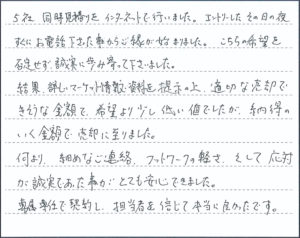 5社 同時見積りを インターネットで行いました。エントリしたその日の夜
すぐにお電話下さった事からご縁が始まりました。こちらの希望を
否定せず、誠実に歩み寄って下さいました。
結果、詳しいマーケット情報、資料を提示の上、適切な売却で
きそうな金額で、希望より少し低い値でしたが、納得の
いく金額で売却に至りました。
何より、細めなご連絡、フットワークの軽さ、そして応対
が誠実であった事がとても安心できました。
専任で契約し、担当者を信じて本当に良かったです。